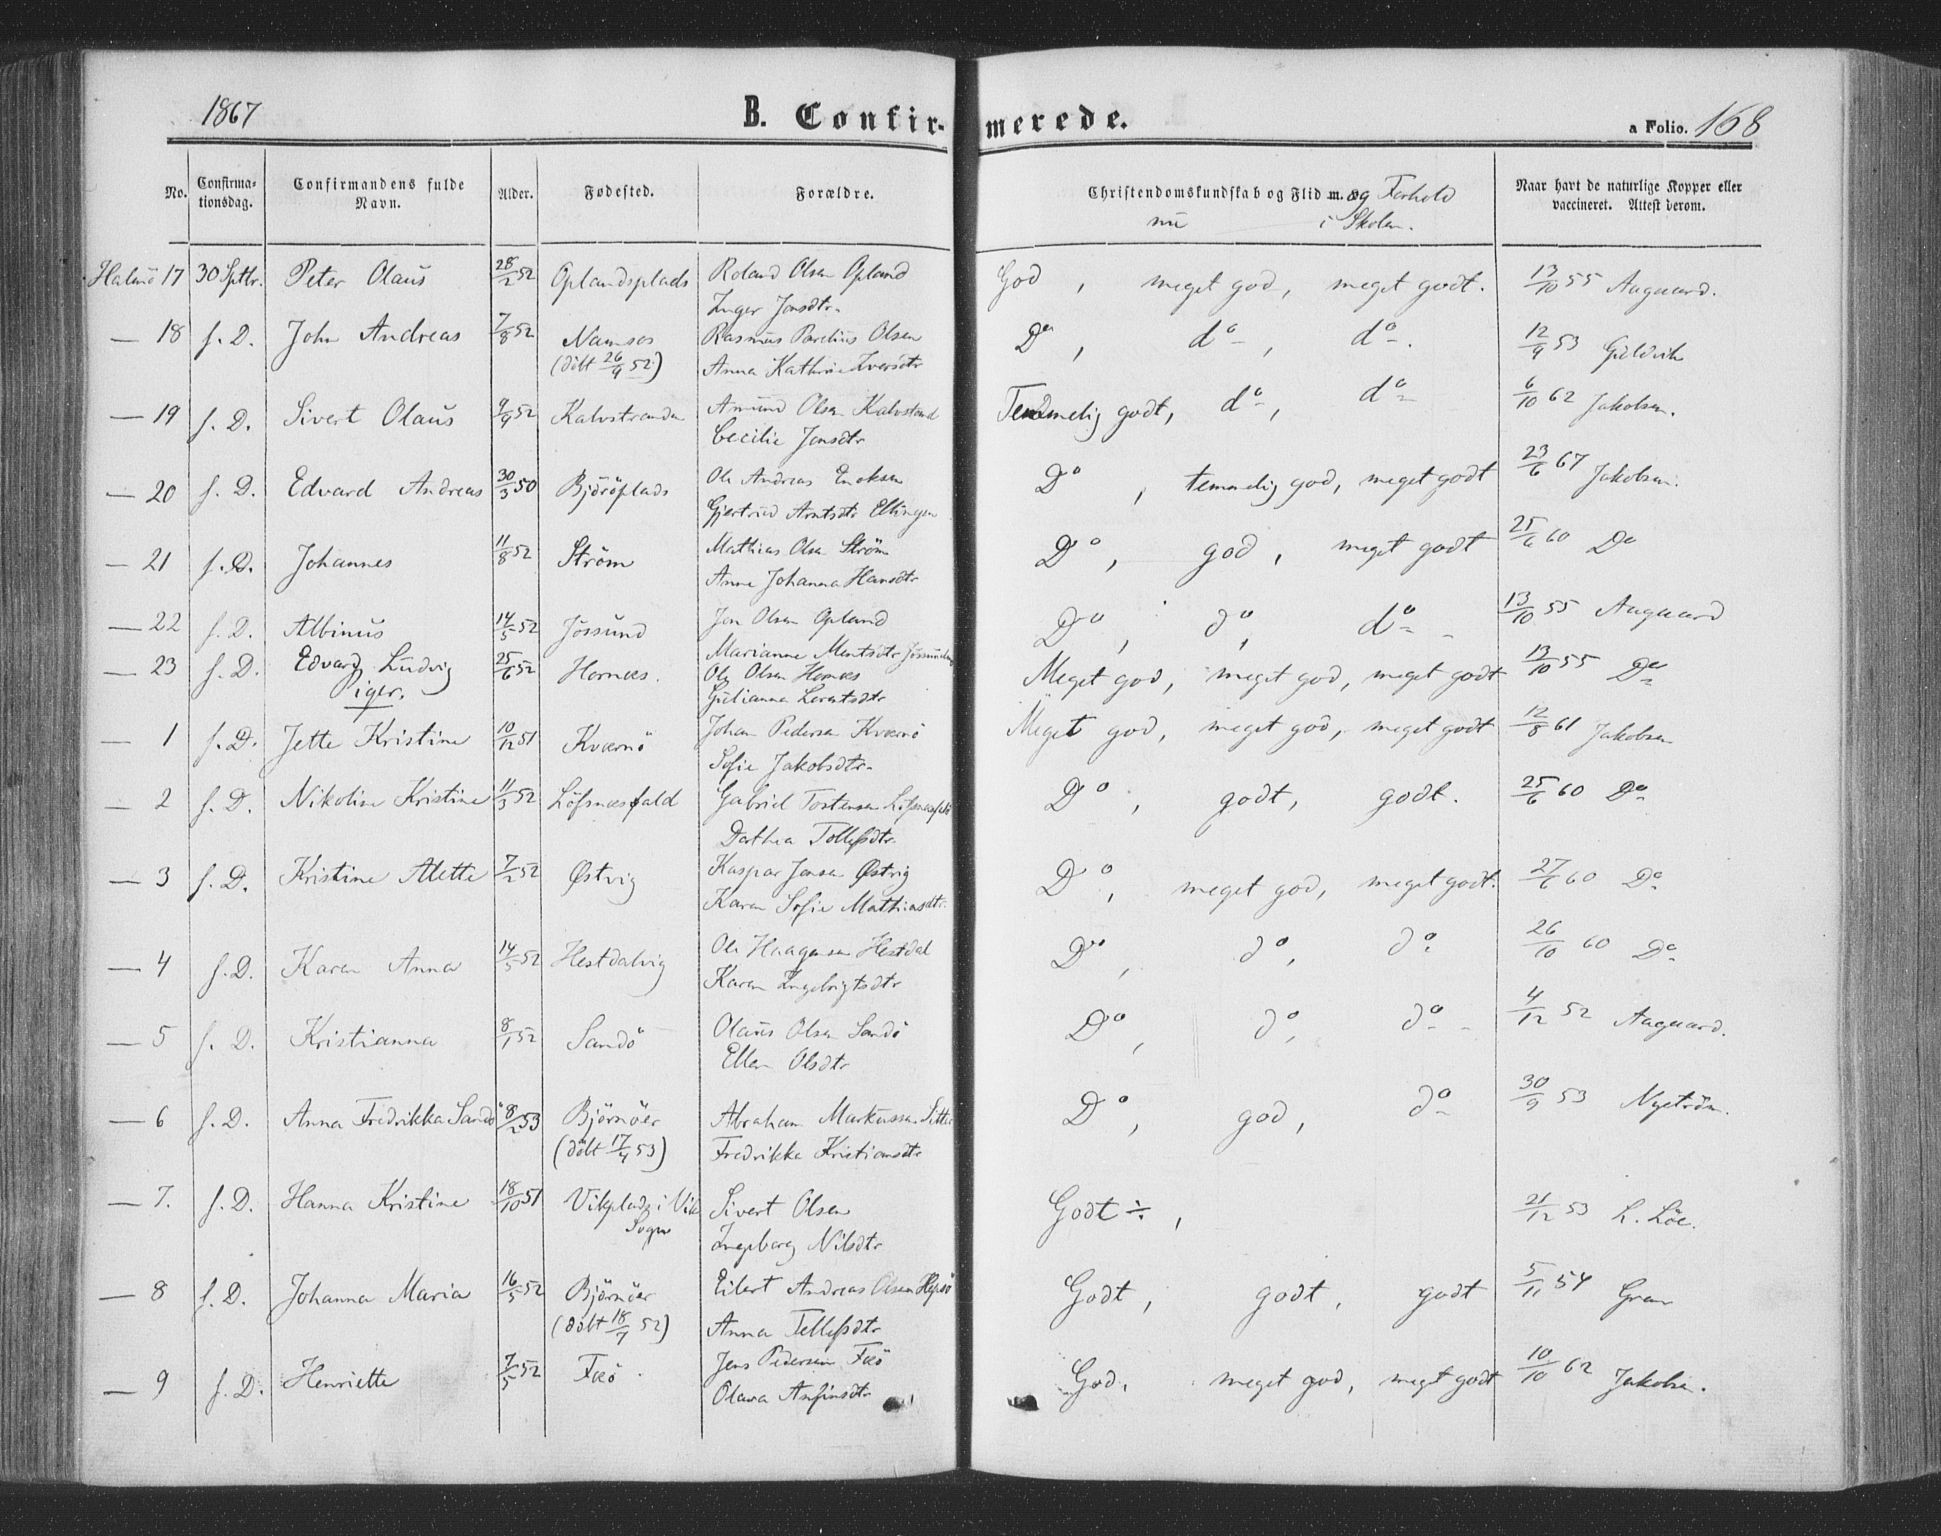 1867 B. Confir- merede. a Folio. 168
No. Confirma- tionsdag. Confirmandens fulde Navn. Alder. Fødested. Forældre. Christendomskundskab og Flid m. og Forhold Naar havt de naturlige Kopper eller vaccineret. Attest derom.
nu i Skolen.
17 30 Septbr. Peter Olaus 28/2 52 Oplandsplads Roland Olsen Opland God, meget god, meget godt. 13/10 55 Aagaard.
Inger Jonsdtr.
— 18 f. D. John Andreas 7/8 52 Namsos Rasmus Parelius Olsen Do, do, do. 12/9 53
(döbt 26/9 52) Anna Kathrine Iversdtr
— 19 f. D. Sivert Olaus 9/9 52 Kalvstranden Amund Olsen Kalvstrand Temmelig godt, do, do 6/10 62 Jakobsen.
Cecilie Jonsdtr
— 20 f. D. Edvard Andreas 30/3 50 Björöplads Ole Andreas Do, temmelig god, meget godt 23/6 67 Jakobsen.
Gjertrud Arntsdtr Eltingen
— 21 f. D. Johannes 11/8 52 Ström Mathias Olsen Ström Do, god, meget godt 25/6 60 Do
Anne Johanna Hansdtr
— 22 f. D. Albinus 14/5 52 Jössund Jon Olsen Opland Do, do, do 13/10 55 Aagaard
Marianne Mentsdtr
— 23 f. D. Edvard Ludvig 25/6 52 Hornæs. Ole Olsen Hornæs Meget god, meget god, meget godt 13/10 55 Do
Piger. Gulianna Lorentsdtr
— 1 f. D. Jette Kristine 10/12 51 Kværnö Johan Pedersen Kværnö Meget god, meget god, meget godt 12/8 61 Jakobsen
Sofie Jakobsdtr.
— 2 f. D. Nikoline Kristine 11/3 52 Löfsnæsfald Gabriel Tostensen Do, godt, godt. 25/6 60 Do
Dorthea Tollefsdtr.
— 3 f. D. Kristine Alette 7/2 52 Østvig Kaspar Jensen Østvig Do, meget god, meget godt. 27/6 60 Do
Karen Sofie Mathiasdtr.
— 4 f. D. Karen Anna 14/5 52 Hestdalvig Ole Haagensen Hestdal Do, do, do 26/10 60 Do
Karen Ingebrigtsdtr
— 5 f. D. Kristianna 8/1 52 Sandö Olaus Olsen Sandö Do, do, do 4/12 52 Aagaard.
Ellen Olsdtr
— 6 f. D. Anna Fredrikka Sandö 8/2 53 Björnöer Abraham Markussen Do, god, do 30/9 53 Nyström.
(döbt 17/4 53) Fredrikke Kristiansdtr
— 7. f. D. Hanna Kristine 18/10 51 Vikplads i Vik Sivert Olsen Godt ÷, 21/12 53 L. Löe.
Sogn Ingeborg Nilsdtr
— 8 f. D. Johanna Maria 16/5 52 Björnöer Eilert Andreas Olsen Hepsö Godt, godt, godt 5/11 54
(döbt 18/7 52) Anna Tellefsdtr
— 9 f. D. Henriette 7/5 52 Fæö. Jens Pedersen Fæö God, meget god, meget godt 10/10 62 Jakobsen.
Olava Anfinsdtr